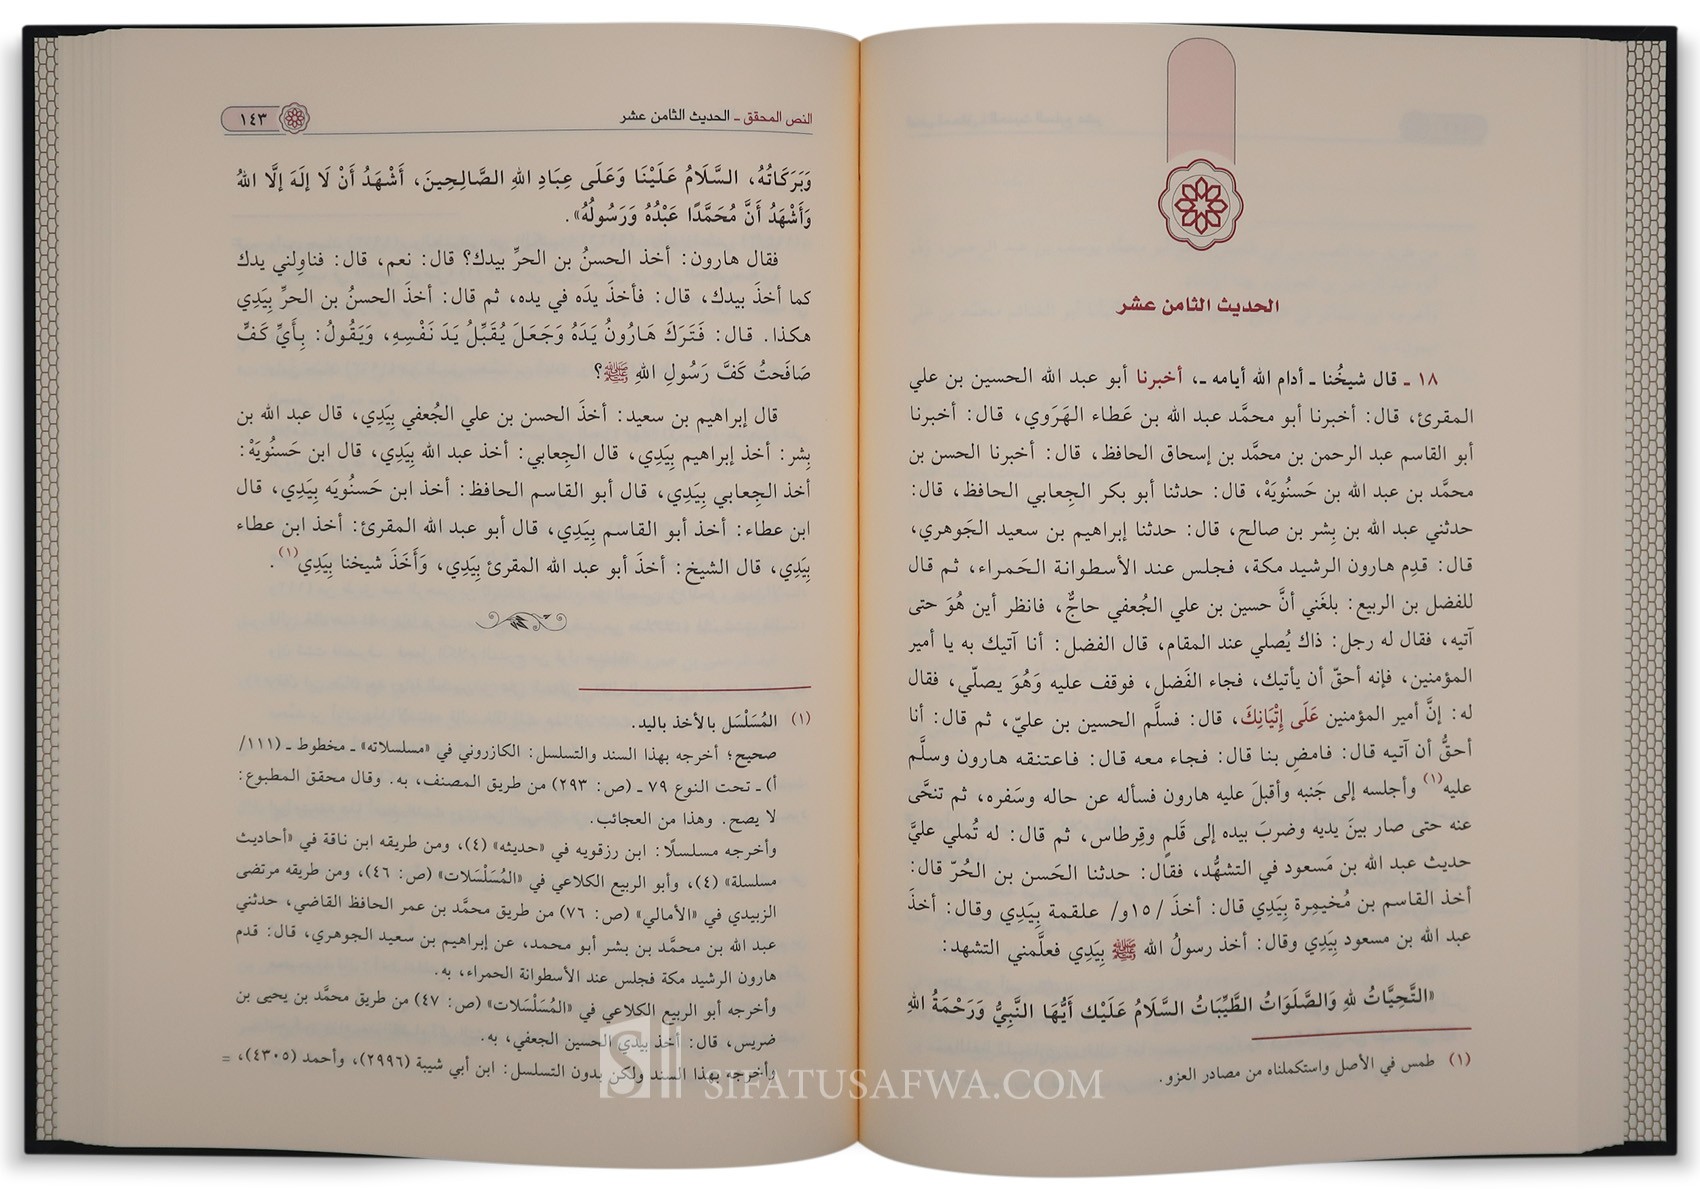 الحديث الثامن عشر
١٨ ـ قال شيخُنا ـ أدام الله أيامه ـ، أخبرنا أبو عبد الله الحسين بن علي
المقرئ، قال: أخبرنا أبو محمَّد عبد الله بن عَطاء الهَرَوي، قال: أخبرنا
أبو القاسم عبد الرحمن بن محمَّد بن إسحاق الحافظ، قال: أخبرنا الحسن بن
محمَّد بن عبد الله بن حَسنُويَهْ، قال: حدثنا أبو بكر الجِعابي الحافظ، قال:
حدثني عبد الله بن بِشر بن صالح، قال: حدثنا إبراهيم بن سعيد الجَوهري،
قال: قدِم هارون الرشيد مكة، فجلس عند الأسطوانة الحَمراء، ثم قال
للفضل بن الربيع: بلغَني أنَّ حسين بن علي الجُعفي حاجٌّ، فانظر أين هُوَ حتى
آتيه، فقال له رجل: ذاك يُصلي عند المقام، قال الفضل: أنا آتيك به يا أمير
المؤمنين، فإنه أحقّ أن يأتيك، فجاء الفَضل، فوقف عليه وَهُوَ يصلّي، فقال
له: إنَّ أمير المؤمنين عَلَى إِتْيَانِكَ، قال: فسلَّم الحسين بن عليّ، ثم قال: أنا
أحقُّ أن آتيه قال: فامضِ بنا قال: فجاء معه قال: فاعتنقه هارون وسلَّم
عليه(١) وأجلسه إلى جَنبه وأقبلَ عليه هارون فسأله عن حاله وسَفره، ثم تنحَّى
عنه حتى صار بينَ يديه وضربَ بيده إلى قَلمٍ وقِرطاس، ثم قال: له تُملي عليَّ
حديث عبد الله بن مَسعود في التشهُّد، فقال: حدثنا الحَسن بن الحُرّ قال:
أخذ القاسم بن مُخيمِرة بِيَدِي قال: أخذَ /١٥و/ علقمة بِيَدِي وقال: أخذَ
عبد الله بن مسعود بِيَدِي وقال: أخذ رسولُ الله ﷺ بِيَدِي فعلَّمني التشهد:
«التَّحِيَّاتُ لِلهِ وَالصَّلَوَاتُ الطَّيِّبَاتُ السَّلَامُ عَلَيْك أَيُّهَا النَّبِيُّ وَرَحْمَةُ اللهِ
(١) طمس في الأصل واستكملناه من مصادر العزو.
النص المحقق ـ الحديث الثامن عشر
١٤٣
وَبَرَكَاتُهُ، السَّلَامُ عَلَيْنَا وَعَلَى عِبَادِ اللهِ الصَّالِحِينَ، أَشْهَدُ أَنْ لَا إِلَهَ إِلَّا اللهُ
وَأَشْهَدُ أَنَّ مُحَمَّدًا عَبْدُهُ وَرَسُولُهُ».
فقال هارون: أخذ الحسنُ بن الحرِّ بيدك؟ قال: نعم، قال: فناوِلني يدك
كما أخذَ بيدك، قال: فأخذَ يدَه في يده، ثم قال: أخذَ الحسنُ بن الحرِّ بِيَدِي
هكذا. قال: فَتَرَكَ هَارُونُ يَدَهُ وَجَعَلَ يُقَبِّلُ يَدَ نَفْسِهِ، وَيَقُولُ: بِأَيِّ كَفٍّ
صَافَحتُ كَفَّ رَسُولِ اللهِ ﷺ؟
قال إبراهيم بن سعيد: أخذَ الحسن بن علي الجُعفي بِيَدِي، قال عبد الله بن
بِشر: أخذ إبراهيم بِيَدِي، قال الجِعابي: أخذ عبد الله بِيَدِي، قال ابن حَسنُويَهْ:
أخذ الجِعابي بِيَدِي، قال أبو القاسم الحافظ: أخذ ابن حَسنُويَه بِيَدِي، قال
ابن عطاء: أخذ أبو القاسم بِيَدِي، قال أبو عبد الله المقرئ: أخذ ابن عطاء
بِيَدِي، قال الشيخ: أخذَ أبو عبد الله المقرئ بِيَدِي، وَأَخَذَ شيخنا بِيَدِي(١).
(١) المُسَلْسَل بالأخذ باليد.
صحيح؛ أخرجه بهذا السند والتسلسل: الكازروني في «مسلسلاته» ـ مخطوط ـ (١١١/
أ) ـ تحت النوع ٧٩ ـ (ص: ٢٩٣) من طريق المصنف، به. وقال محقق المطبوع:
لا يصح. وهذا من العجائب.
وأخرجه مسلسلًا: ابن رزقويه في «حديثه» (٤)، ومن طريقه ابن ناقة في «أحاديث
مسلسلة» (٤)، وأبو الربيع الكلاعي في «المُسَلْسَلات» (ص: ٤٦)، ومن طريقه مرتضى
الزبيدي في «الأمالي» (ص: ٧٦) من طريق محمَّد بن عمر الحافظ القاضي، حدثني
عبد الله بن محمَّد بن بشر أبو محمد، عن إبراهيم بن سعيد الجوهري، قال: قدم
هارون الرشيد مكة فجلس عند الأسطوانة الحمراء، به.
وأخرجه أبو الربيع الكلاعي في «المُسَلْسَلات» (ص: ٤٧) من طريق محمَّد بن يحيى بن
ضريس، قال: أخذ بيدي الحسين الجعفي، به.
وأخرجه بهذا السند ولكن بدون التسلسل: ابن أبي شيبة (٢٩٩٦)، وأحمد (٤٣٠٥)، =
SIFATUSAFWA.COM